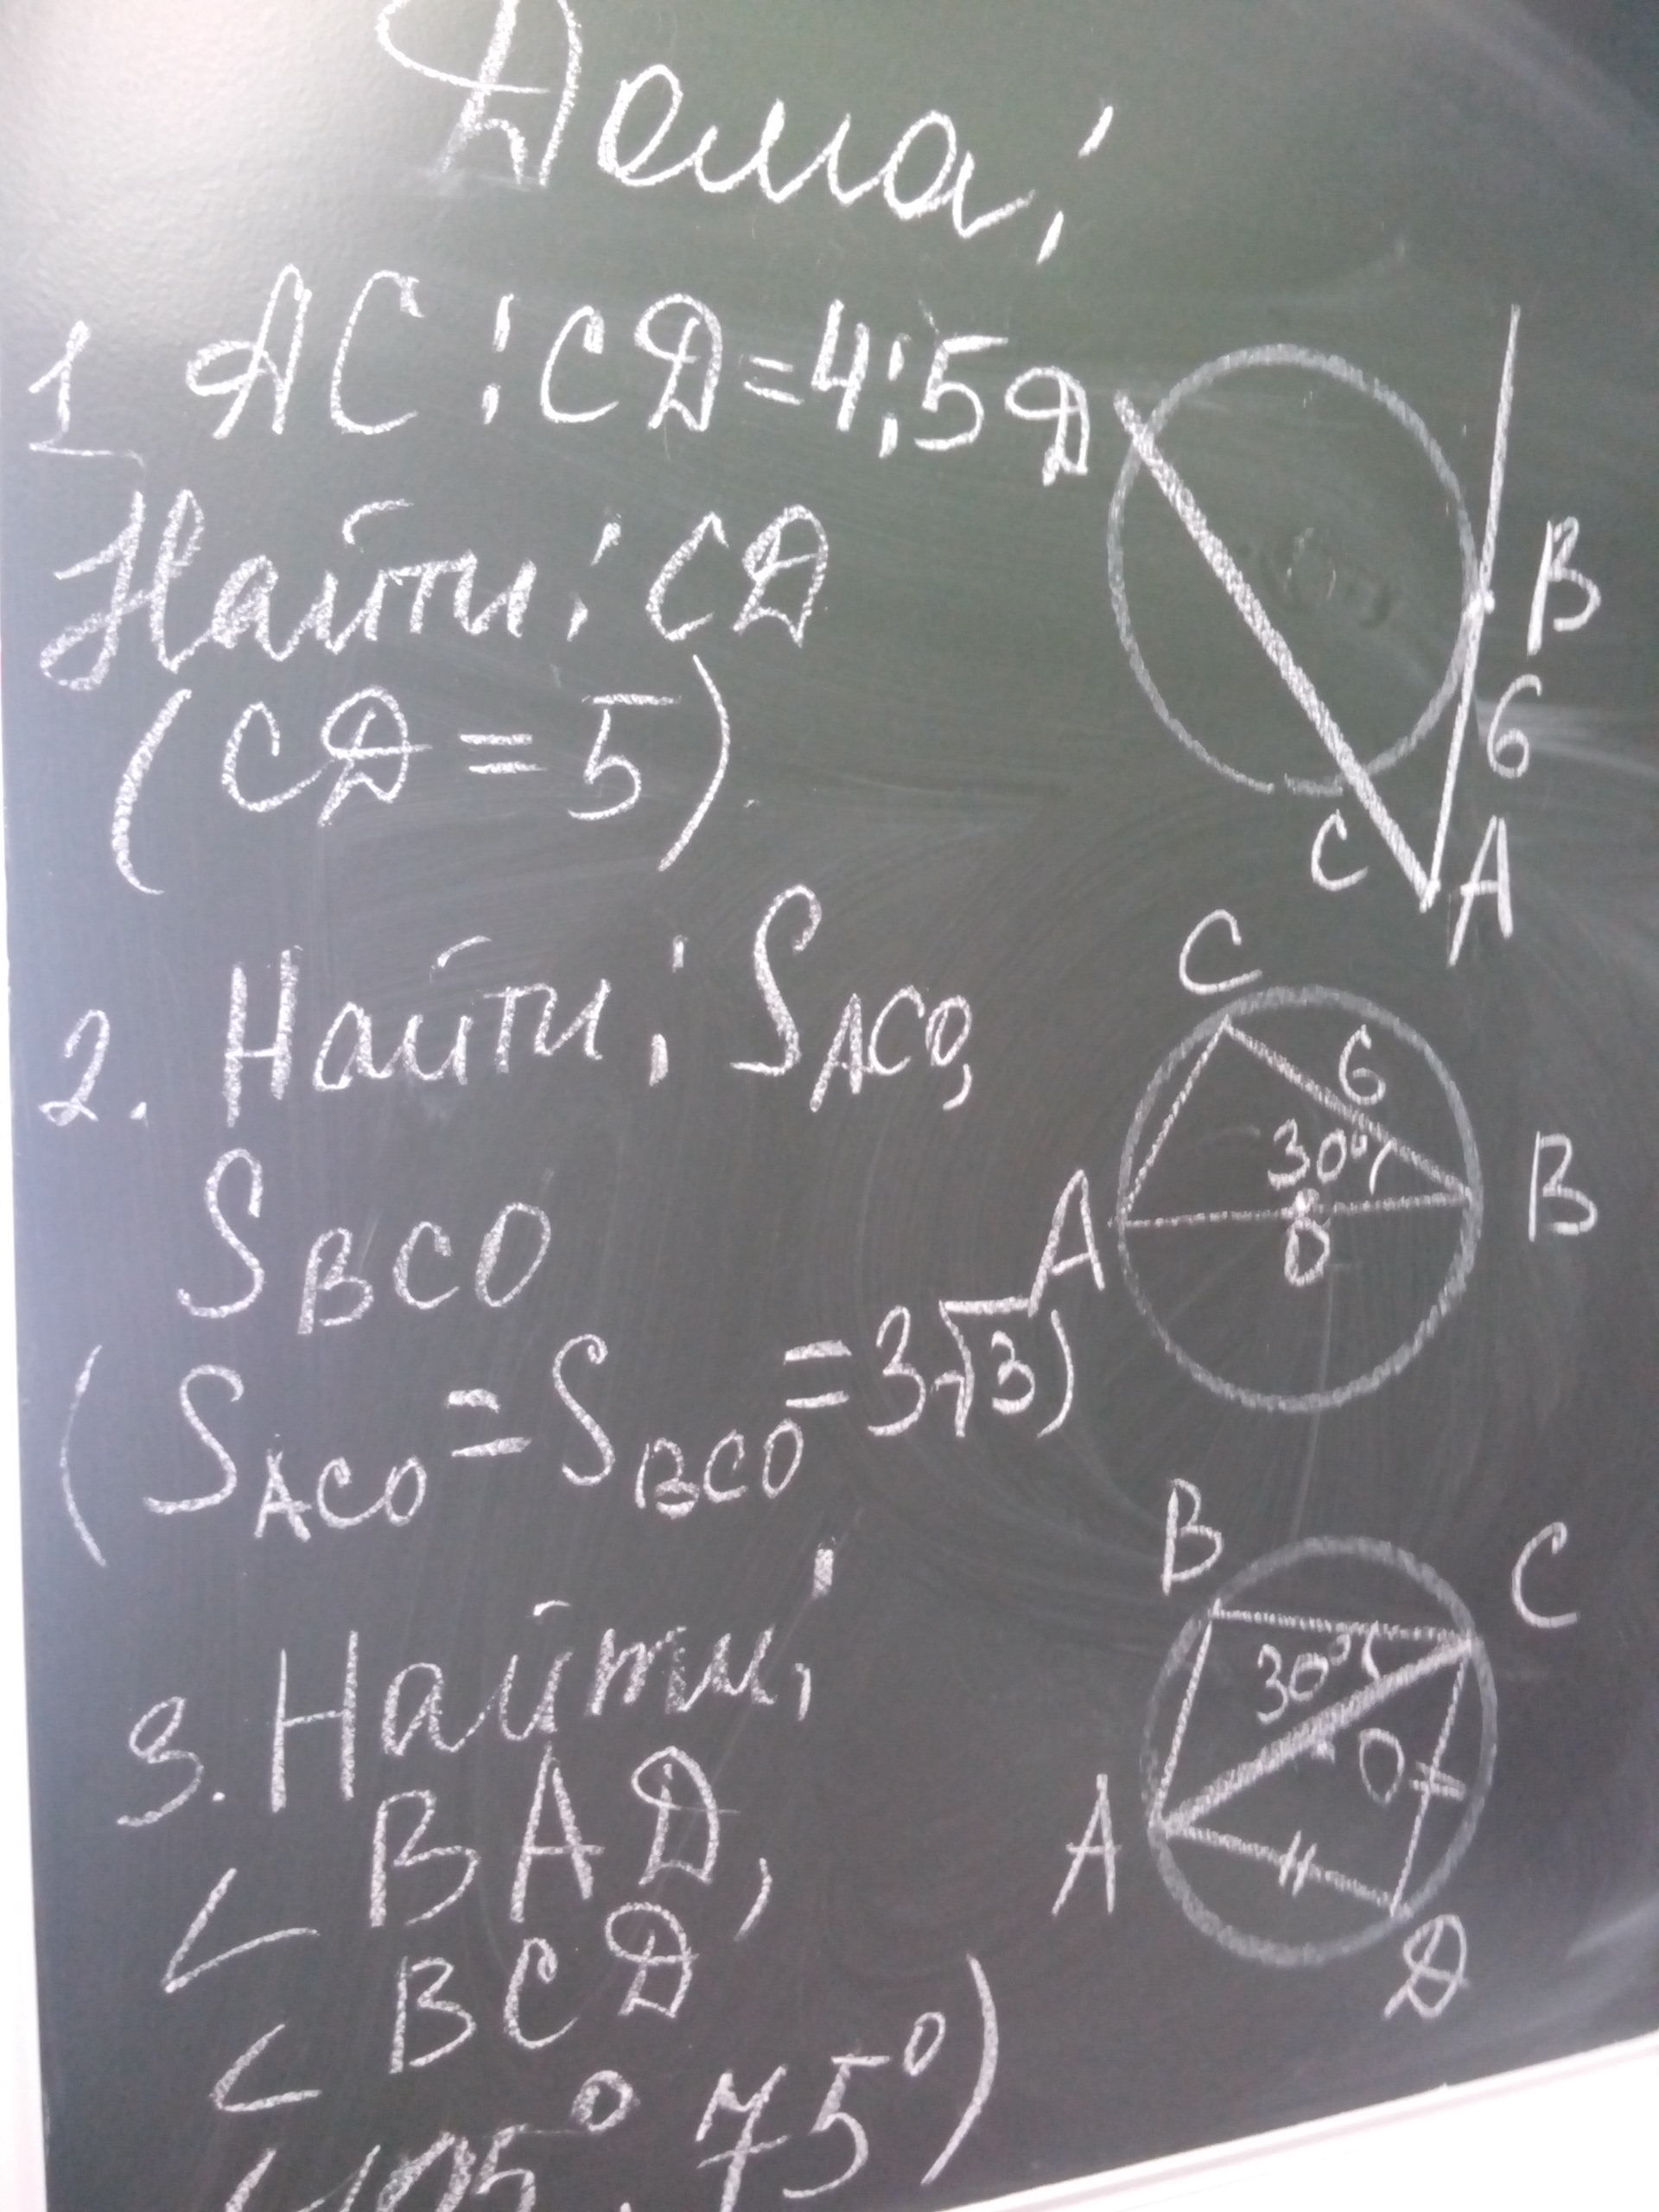 Дома:
1 AC : CD = 4:5
Найти: CD
(CD = 5)
D
B
6
C
A
2. Найти: S_ACO,
S_BCO
(S_ACO = S_BCO = 3√3)
C
6
30°
B
A
O
3. Найти:
< BAD,
< BCD
(105°, 75°)
B
C
30°
O
A
D